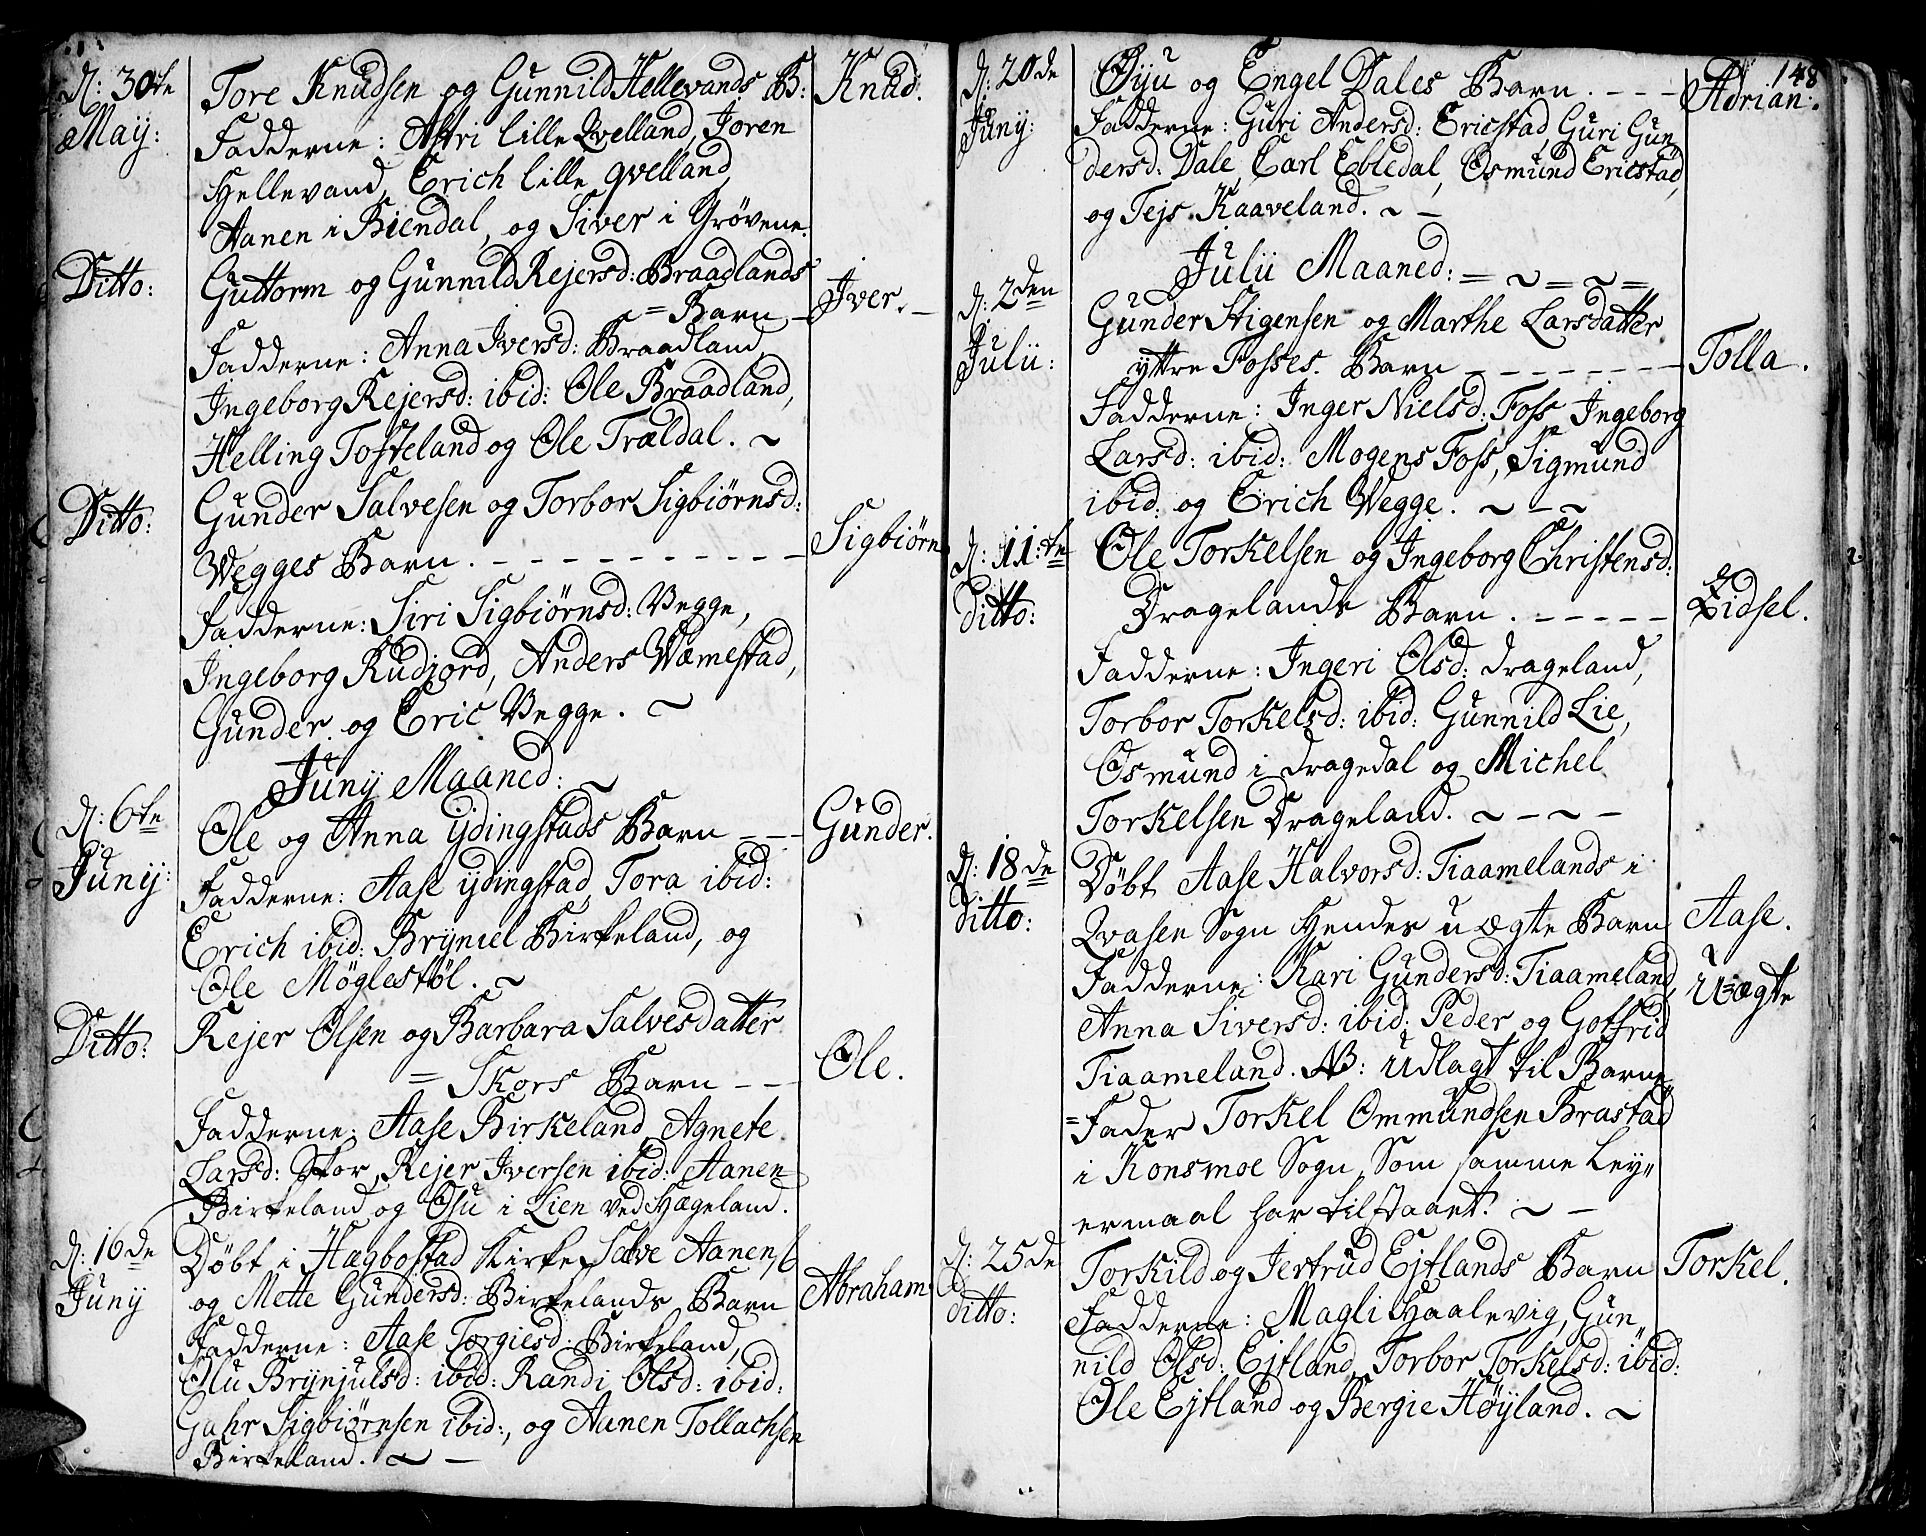 d: 30te Tore Knudsen og Gunnild Hellevands B: Knud.
May: Fadderne: Astri lille Qvelland, Joren
Hellevand, Erich lille qvelland
Aanen i Biendal, og Siver i Grövene.
Ditto: Guttorm og Gunnild Rejersd: Braadlands
= Barn – Iver. –
Fadderne: Anna Iversd: Braadland,
Ingeborg Rejersd: ibid: Ole Braadland,
Helling Tofteland og Ole Trældal. ~
Ditto: Gunder Salvesen og Torbor Sigbiörnsd:
Wegges Barn. – – – – – – – – – – Sigbiörn
Fadderne: Siri Sigbiörnsd: Vegge,
Ingeborg Rudjord, Anders Wæmestad,
Gunder og Eric Vegge. ~
Juny Maaned: ~
d: 6te Ole og Anna ydingstads Barn – – – Gunder.
Juny: Fadderne: Aase ydingstad, Tora ibid:
Erich ibid: Bryniel Birkeland, og
Ole Möglestöl. ~
Ditto: Rejer Olsen og Barbara Salvesdatter
= Skors Barn – – – Ole.
Fadderne: Aase Birkeland, Agnete
Larsd: Skor, Rejer Iversen ibid: Aanen
Birkeland og Osu i Lien ved Hægeland.
d: 16de Döbt i Hægbostad Kirke, Salve Aanens:
Juny og Mette Gundersd: Birkelands Barn Abraham
Fadderne: Aase Torgiesd: Birkeland,
Olu Brynjulsd: ibid: Randi Olsd: ibid:
Gahr Sigbiörnsen ibid:, og Aanen Tollachsen
Birkeland. ~ –
148
d: 20de Öyu og Engel Dales Barn. – – – Adrian.
Juny: Fadderne: Guri Andersd: Ericstad, Guri Gun
dersd: Dale, Carl Ebledal, Osmund Ericstad,
og Tejs Kaaveland. ~ –
Julii Maaned: = ~ = ~ =
d: 2den Gunder Stigensen og Marthe Larsdatter
Julii: yttre Fosses. Barn – – – – – – – – Tolla.
Fadderne: Inger Nielsd: Foss Ingeborg
Larsd: ibid: Mogens Foss, Sigmund
ibid: og Erich Wegge. ~ – ~
d: 11:te Ole Torkelsen og Ingeborg Christensd:
ditto: Dragelands Barn. – – – – – Eidsel.
Fadderne: Ingeri Olsd: drageland,
Torbor Torkelsd: ibid: Gunnild Lie,
Osmund i dragedal og Michel
Torkelsen Drageland. ~ – ~ –
d: 18de Döbt Aase Halvorsd: Tiaamelands i
ditto: Qvasen Sogn Hendes uægte Barn Aase.
Fadderne: Kari Gundersd: Tiaameland, Uægte
Anna Siversd: ibid: Peder og Gotfrid
Tiaameland. NB: Udlagt til Barne
=Fader Torkel Ommundsen Brastad
i Konsmoe Sogn, Som samme Ley„
ermaal har tilstaaet. ~ –
d: 25de Torkild og Jertrud Ejtlands Barn Torkel.
ditto: Fadderne: Magli Haalevig, Gun„
nild Olsd: Ejtland, Torbor Torkelsd: ibid:
Ole Ejtland og Bergie Höyland. ~